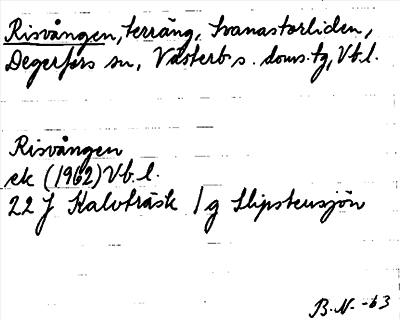 Risvången, terräng, Svanastarliden,
Degerfors sn, Västerb s. doms. tg, Vb.l.
Risvången
ek (1962) Vb.l.
22 J Kalvträsk /g Slipstensjön
B.N. -63